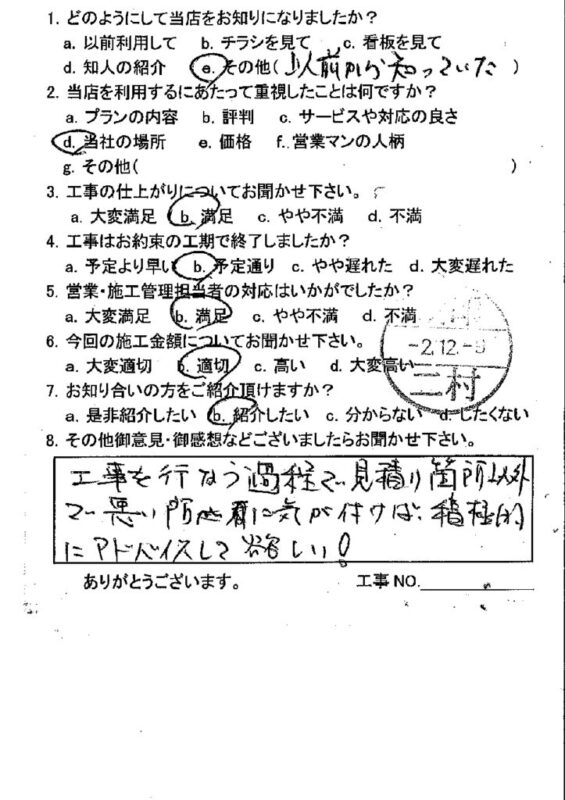 1. どのようにして当店をお知りになりましたか？
a. 以前利用して b. チラシを見て c. 看板を見て
d. 知人の紹介 e. その他( 以前から知っていた )
2. 当店を利用するにあたって重視したことは何ですか？
a. プランの内容 b. 評判 c. サービスや対応の良さ
d. 当社の場所 e. 価格 f. 営業マンの人柄
g. その他( )
3. 工事の仕上がりについてお聞かせ下さい。
a. 大変満足 b. 満足 c. やや不満 d. 不満
4. 工事はお約束の工期で終了しましたか？
a. 予定より早い b. 予定通り c. やや遅れた d. 大変遅れた
5. 営業・施工管理担当者の対応はいかがでしたか？
a. 大変満足 b. 満足 c. やや不満 d. 不満
6. 今回の施工金額についてお聞かせ下さい。
a. 大変適切 b. 適切 c. 高い d. 大変高い
-2.12.-9
二村
7. お知り合いの方をご紹介頂けますか？
a. 是非紹介したい b. 紹介したい c. 分からない d. したくない
8. その他御意見・御感想などございましたらお聞かせ下さい。
工事を行なう過程で見積り箇所以外
で悪い所に気が付けば、積極的
にアドバイスして欲しい！
ありがとうございます。 工事NO.